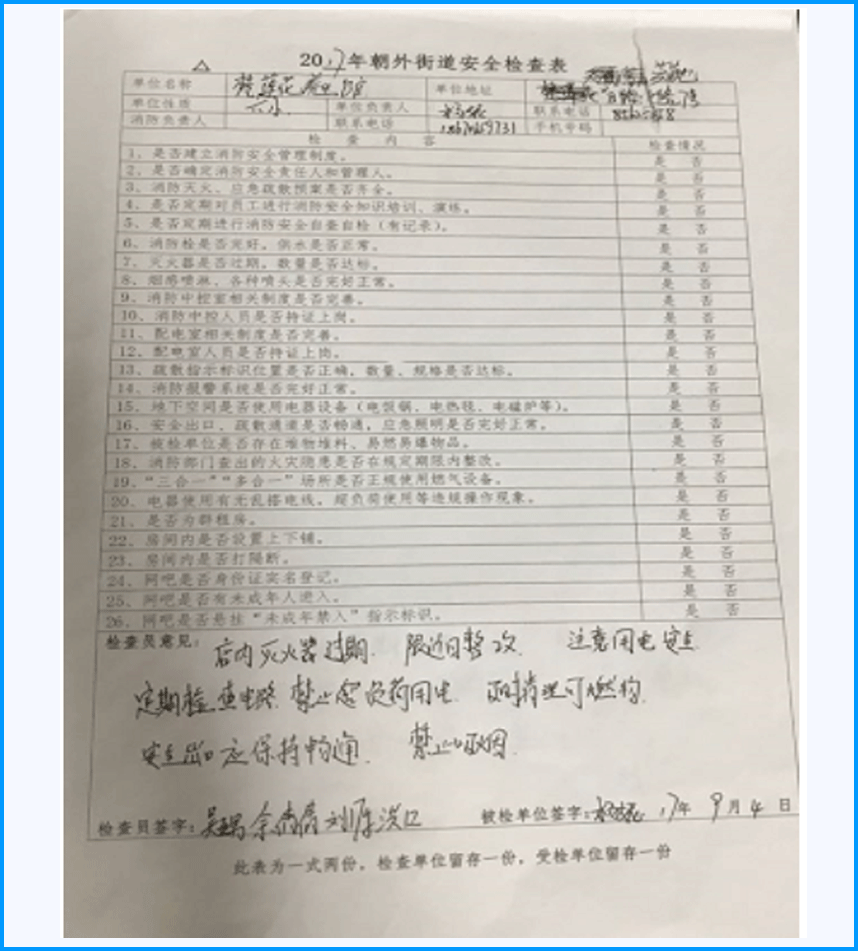 2017年朝外街道安全检查表
单位名称 莲花 单位地址
单位性质 单位负责人 联系电话
消防负责人 联系电话 手机号码
检 查 内 容 检查情况
1、是否建立消防安全管理制度。 是 否
2、是否确定消防安全责任人和管理人。 是 否
3、消防灭火、应急疏散预案是否齐全。 是 否
4、是否定期对员工进行消防安全知识培训、演练。 是 否
5、是否定期进行消防安全自查自检（有记录）。 是 否
6、消防栓是否完好，供水是否正常。 是 否
7、灭火器是否过期，数量是否达标。 是 否
8、烟感喷淋、各种喷头是否完好正常。 是 否
9、消防中控室相关制度是否完善。 是 否
10、消防中控人员是否持证上岗。 是 否
11、配电室相关制度是否完善。 是 否
12、配电室人员是否持证上岗。 是 否
13、疏散指示标识位置是否正确，数量、规格是否达标。 是 否
14、消防报警系统是否完好正常。 是 否
15、地下空间是否使用电器设备（电饭锅、电热毯、电磁炉等）。 是 否
16、安全出口、疏散通道是否畅通，应急照明是否完好正常。 是 否
17、被检单位是否存在堆物堆料、易燃易爆物品。 是 否
18、消防部门查出的火灾隐患是否在规定期限内整改。 是 否
19、“三合一”“多合一”场所是否正规使用燃气设备。 是 否
20、电器使用有无乱搭电线，超负荷使用等违规操作现象。 是 否
21、是否为群租房。 是 否
22、房间内是否设置上下铺。 是 否
23、房间内是否打隔断。 是 否
24、网吧是否身份证实名登记。 是 否
25、网吧是否有未成年人进入。 是 否
26、网吧是否悬挂“未成年禁入”指示标识。 是 否
检查员意见： 店内灭火器过期. 限近日整改. 注意用电安全
定期检查电路. 禁止超负荷用电. 及时清理可燃物.
安全出口应保持畅通. 禁止吸烟.
检查员签字： 被检单位签字： 17年 9月4日
此表为一式两份，检查单位留存一份，受检单位留存一份